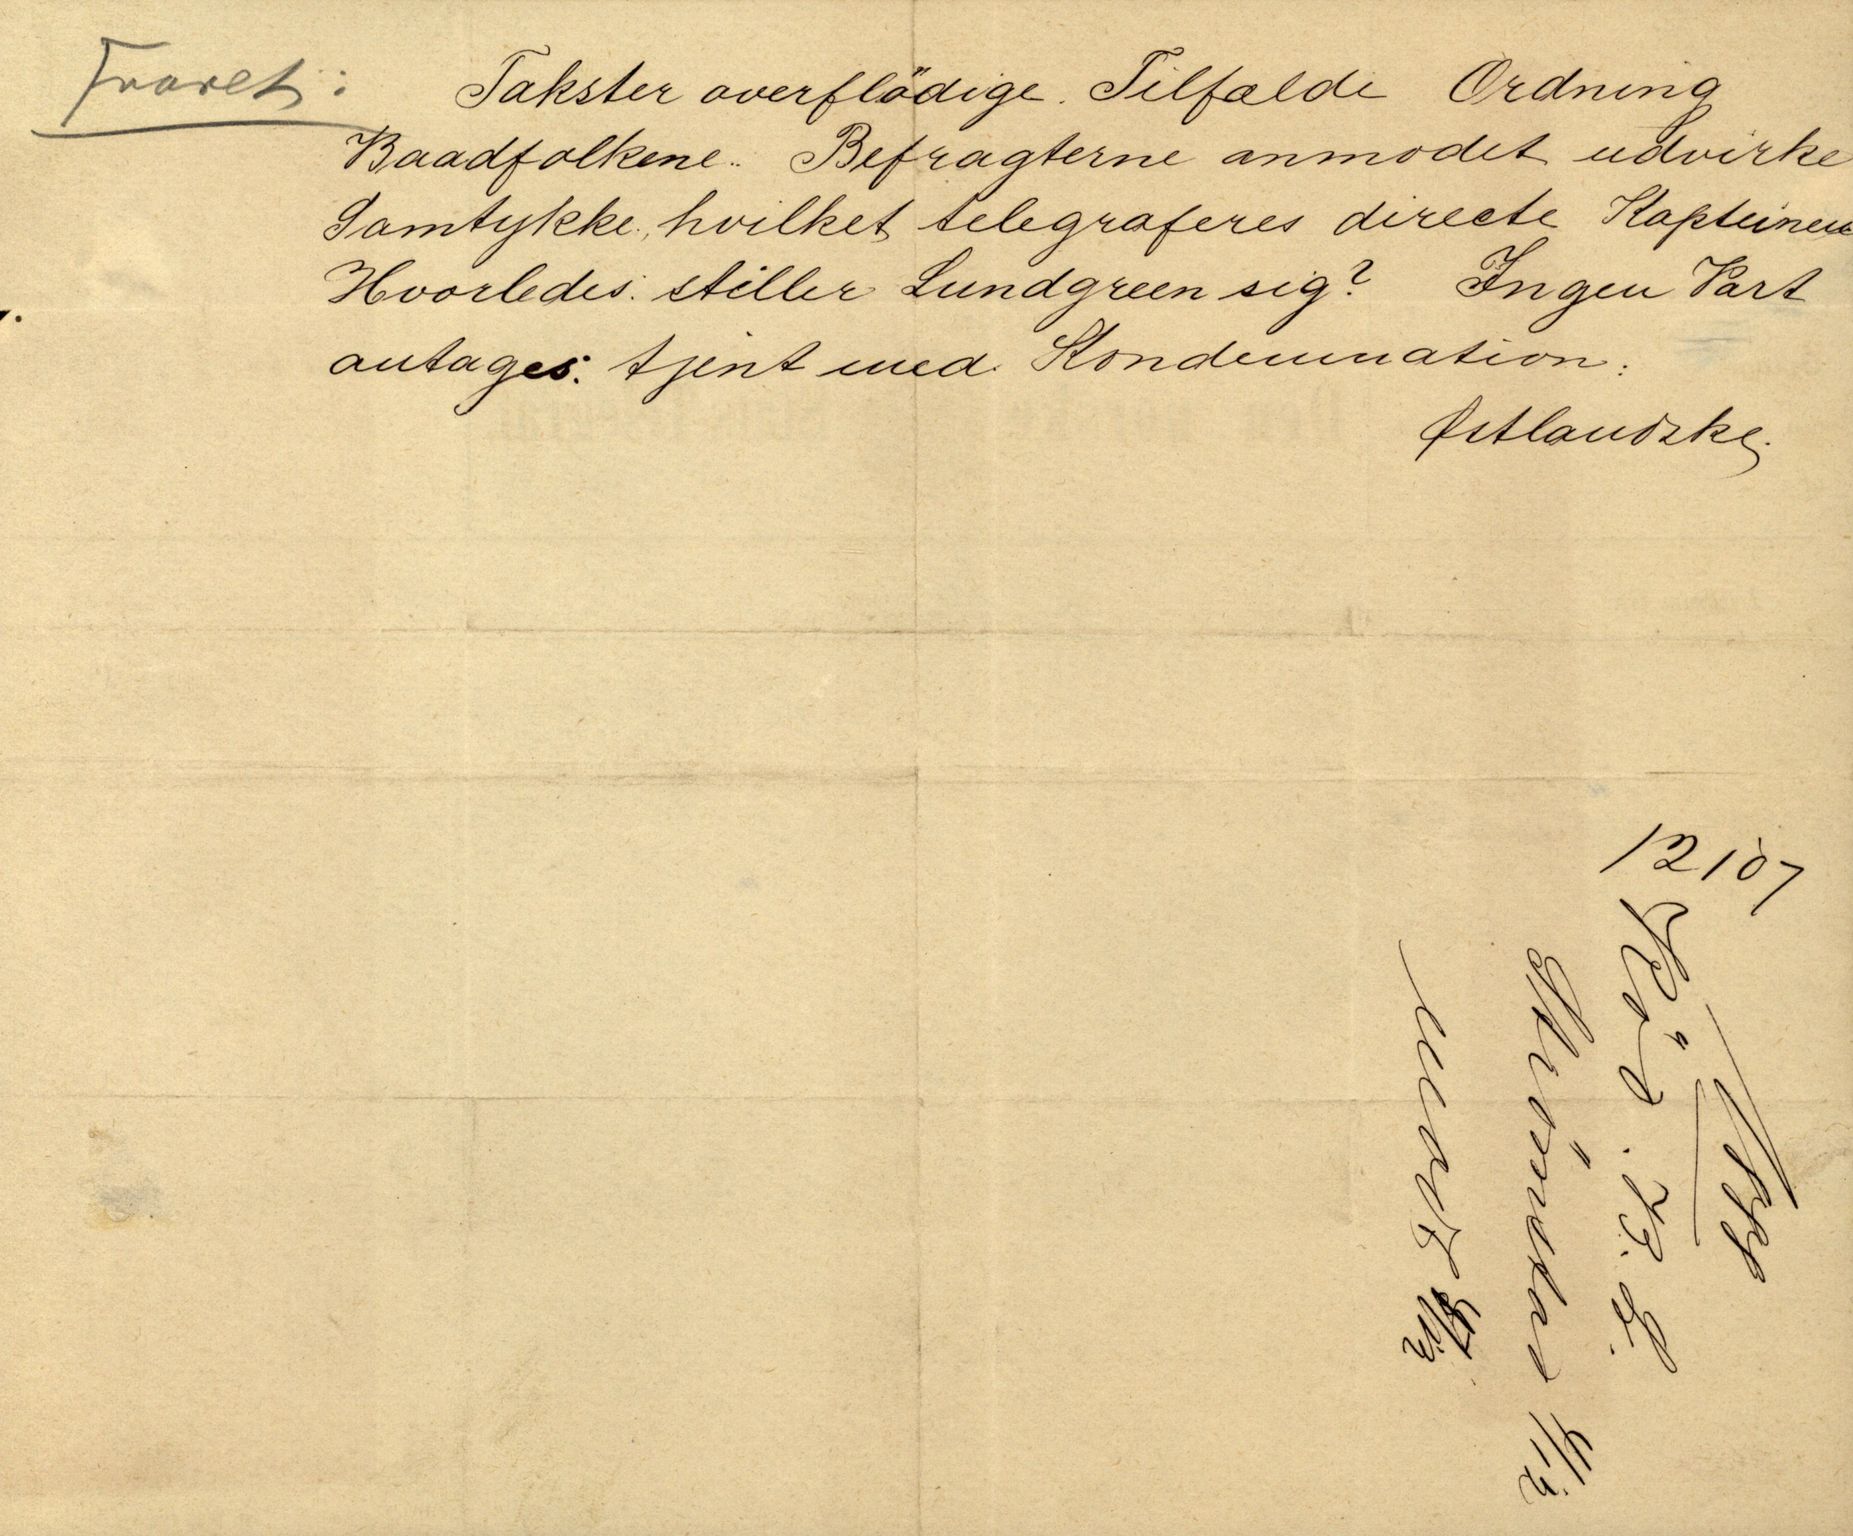 Svaret:
Takster overflödige. Tilfælde Ordning
Baadfolkene. Befragterne anmodet udvirke
Samtykke, hvilket telegraferes directe Kapteinen
Hvorledes stiller Lundgreen sig? Ingen Part
antages tjent med Kondemnation.
Østlandske.
12107
1888
Kbd. T. S.
4/12
4/12